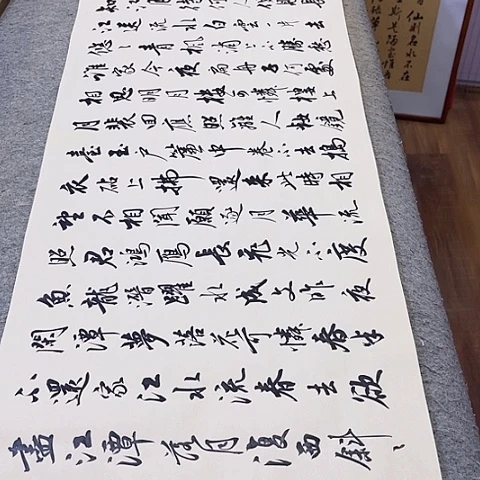 江送流水白雲一片去
悠々青楓浦上不勝愁
誰家今夜扁舟子何處
相思明月樓可憐樓上
月裴回應照離人妝鏡
臺玉戶簾中卷不去搗
衣砧上拂還來此時相
望不相聞願逐月華流
照君鴻雁長飛光不度
魚龍潛躍水成文昨夜
閑潭夢落花可憐春半
不還家江水流春去欲
盡江潭落月復西斜